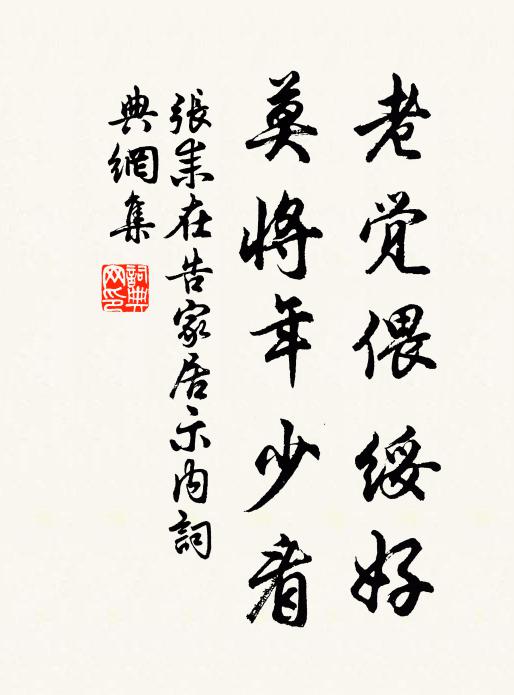 老觉偎綏好
莫将年少看
張耒在告家居示内詞
典網集
詞典
网印